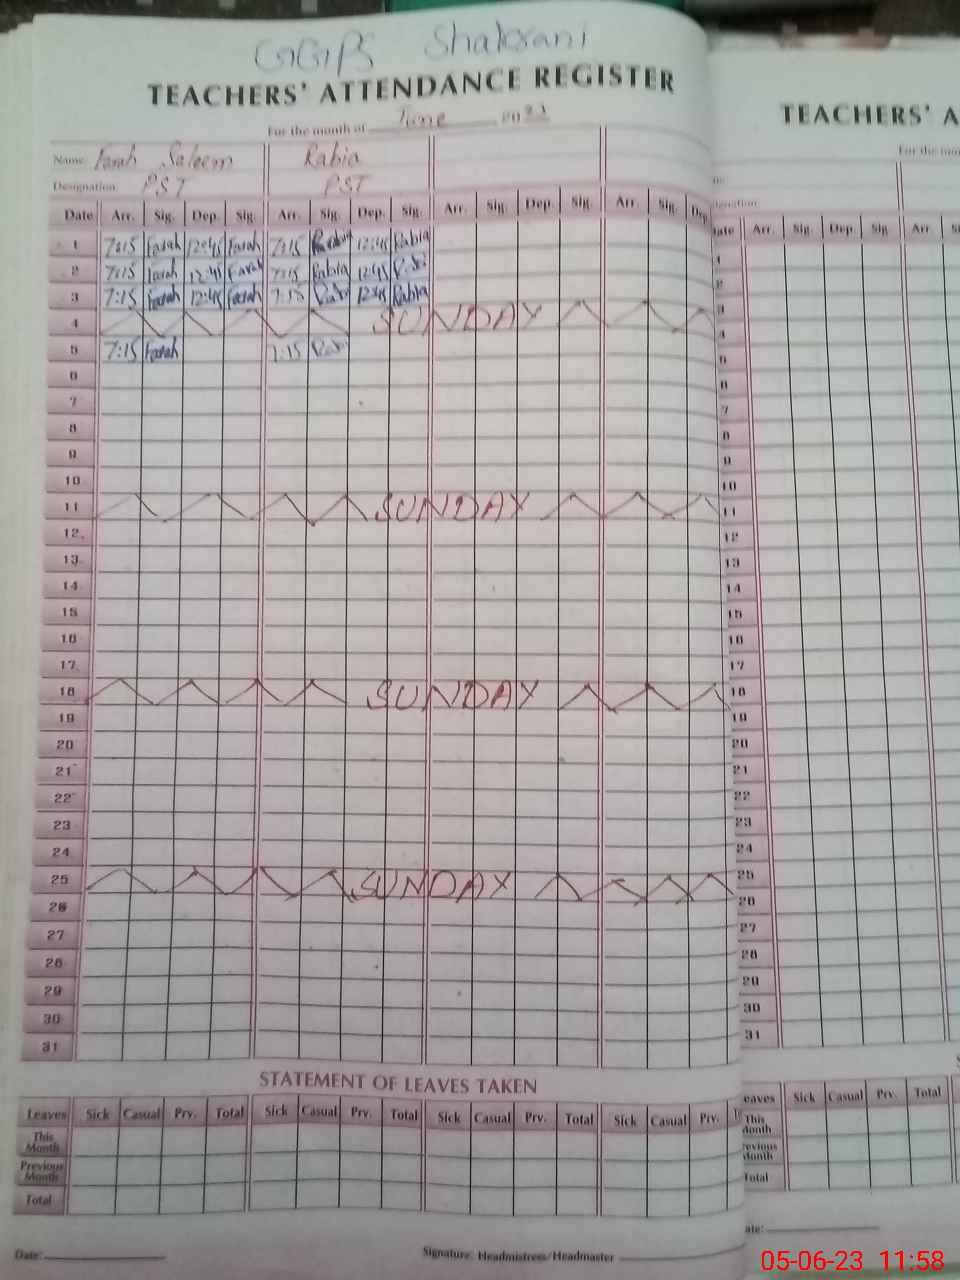 GGPS Shakrani
TEACHERS' ATTENDANCE REGISTER
For the month of June 2023
Name Farah Saleem Rabia
Designation PST PST
Date Arr. Sig. Dep. Sig. Arr. Sig. Dep. Sig. Arr. Sig. Dep. Sig. Arr. Sig. Dep.
1 7:15 Farah 12:45 Farah 7:15 Rabia 12:45 Rabia
2 7:15 Farah 12:45 Farah 7:15 Rabia 12:45 Rabia
3 7:15 Farah 12:45 Farah 7:15 Rabia 12:45 Rabia
4 SUNDAY
5 7:15 Farah 7:15 Rabia
6
7
8
9
10
11 SUNDAY
12
13
14
15
16
17
18 SUNDAY
19
20
21
22
23
24
25 SUNDAY
26
27
28
29
30
31
STATEMENT OF LEAVES TAKEN
Leaves Sick Casual Prv. Total Sick Casual Prv. Total Sick Casual Prv. Total Sick Casual Prv.
This Month
Previous Month
Total
Date: Signature: Headmistress/Headmaster
TEACHERS' A
For the mon
Arr. Sig. Dep. Sig. Arr.
1
2
3
4
5
6
7
8
9
10
11
12
13
14
15
16
17
18
19
20
21
22
23
24
25
26
27
28
29
30
31
eaves Sick Casual Prv. Total
This
Month
revious
Month
Total
ate:
05-06-23 11:58